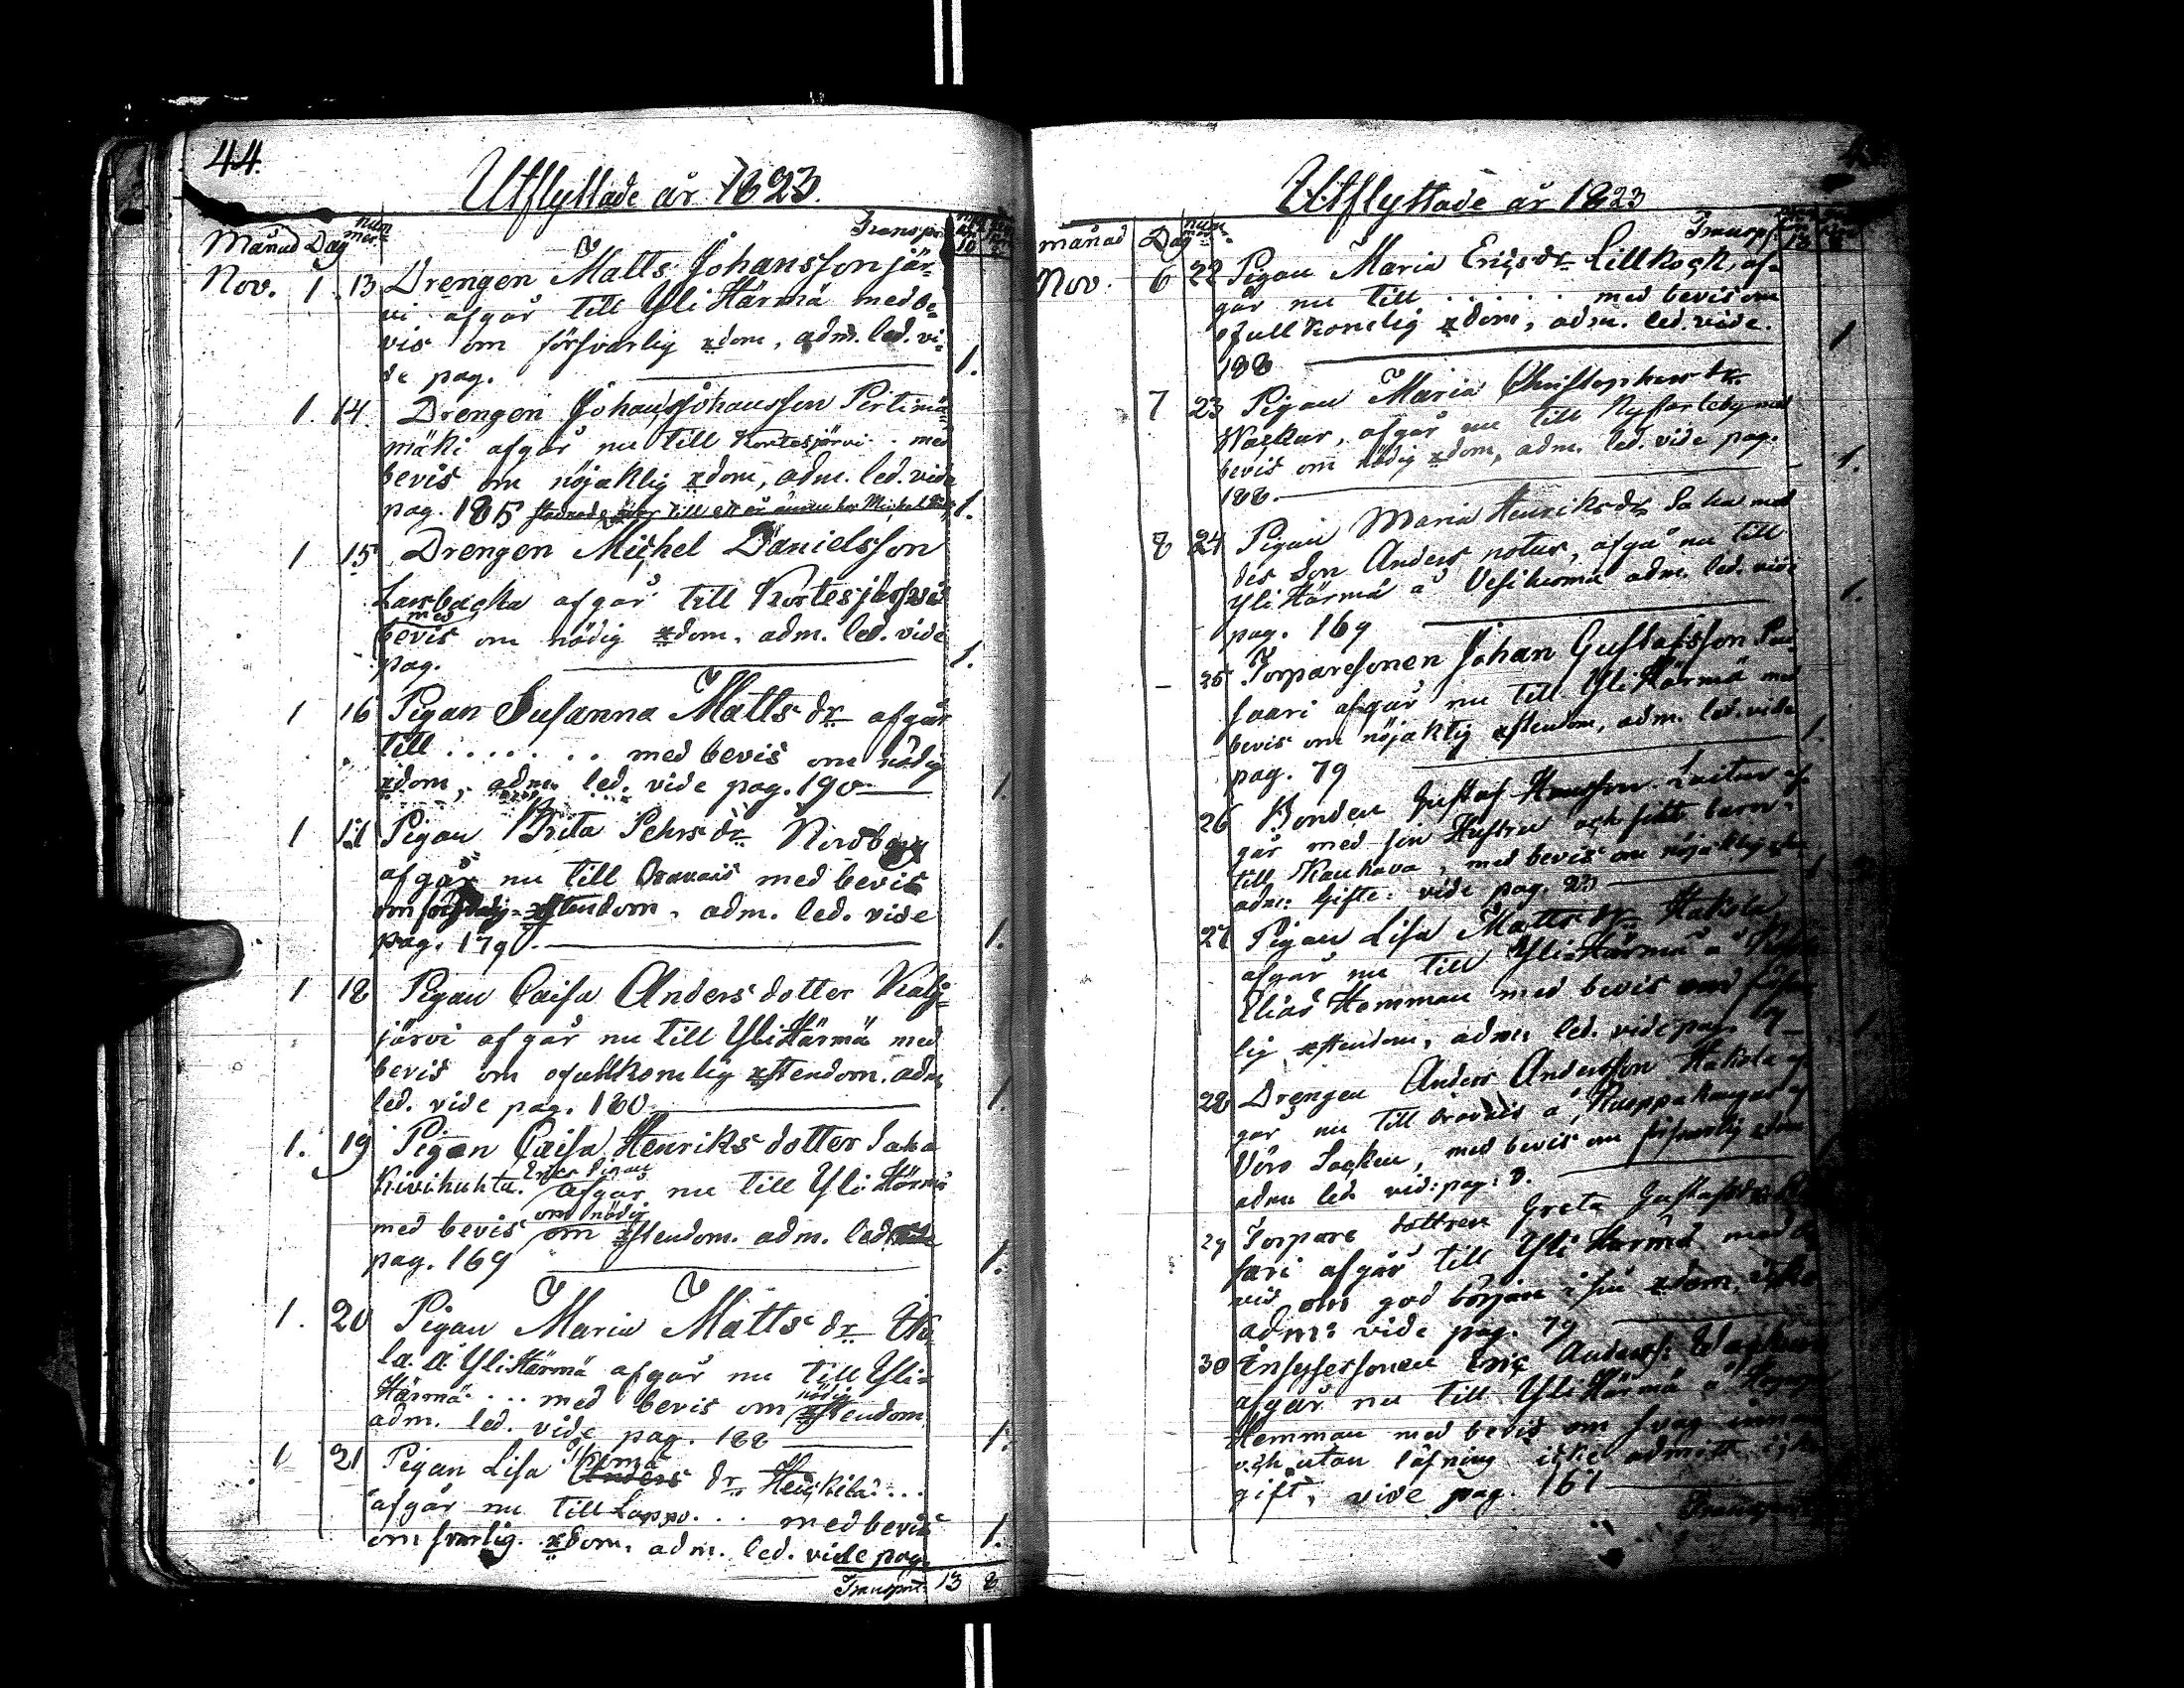 44.
Utflyttade år 1823.
Månad Dag num mer. Transp. 10
Nov. 1 13 Drengen Matts Johansson jär-
vi afgår till Yli Härmä med be-
vis om försvarlig xdom, adm. led. vi-
de pag. 1.
1. 14. Drengen Johan Johansson Pertimä-
mäki afgår nu till Kortesjärvi . . med
bevis om nöjaktig xdom, adm. led. vide
pag. 185 1.
1 15 Drengen Michel Danielsson
Larsbacka afgår till Kortesjärfwi
med
bevis om nödig xdom. adm. led. vide
pag. 1.
1 16 Pigan Susanna Matts dr afgår
till . . . . . . . med bevis om nödig
xdom, adm. led. vide pag. 190 1.
1 Pigan Brita Pehrs dr
afgår nu till Oravais med bevis
om xstendom, adm. led. vide
pag. 179. 1.
1 18 Pigan Caisa Anders dotter
järvi afgår nu till Yli Härmä med
bevis om ofullkomlig xstendom. adm.
led. vide pag. 180. 1.
1. 19 Pigan Caisa Henriks dotter Saha
Kivihuhta. afgår nu till Yli Härmä
om nödig
med bevis om xstendom. adm. led.
pag. 169 1.
1. 20 Pigan Maria Matts dr
la. å Yli Härmä afgår nu till Yli-
Härmä . . . med bevis om nödig xstendom
adm. led. vide pag. 188 1.
1 21 Pigan Lisa Anders dr Heickilä . . .
afgår nu till Lappo. . . med bevis
om svarlig. xdom. adm. led. vide pag.
1.
Transport. 13 8
Utflyttade år 1823
månad Dag Transp. 13 8
Nov. 6 22 Pigan Maria Erics dr Lillkock, af-
går nu till . . . . . med bevis om
ofullkomlig xdom, adm. led. vide.
188 1
7 23 Pigan Maria Christophers dr
Wackar, afgår nu till Nykarleby med
bevis om nödig xdom, adm. led. vide pag.
188. 1.
8 24 Pigan Maria Henriks dr Saha med
des Son Anders notus, afgå nu till
Yli Härmä å Vesihermä adm. led. vide
pag. 169 1.
25 Torparesonen Johan Gustafsson
saari afgår nu till Yli Härmä med
bevis om nöjaktig xstendom, adm. led. vide
pag. 79 1.
26 Bonden Gustaf af-
går med sin Hustru och sitt barn
till Kauhava, med bevis om nöjaktig
adm. Gifte: vide pag. 23
27 Pigan Lisa Matts dr Hakola
afgår nu till Yli Härmä å
Elias Hemman med bevis
lig xstendom, adm. led. vide pag.
28 Drengen Anders Andersson Hakola af-
går nu till Oravais å
Vörå Socken, med bevis om försvarlig xdom
adm led. vid: pag: 8.
29 Torpare dottren Greta Gustafs dr
sari afgår till Yli Härmä med be-
vis om god början i sin xdom, icke
adm: vide pag. 79
30 Inhysessonen Eric Anderss:
afgår nu till Yli Härmä å
Hemman med bevis om svag innan
och utan läsning icke admitt. icke
gift, vide pag. 161